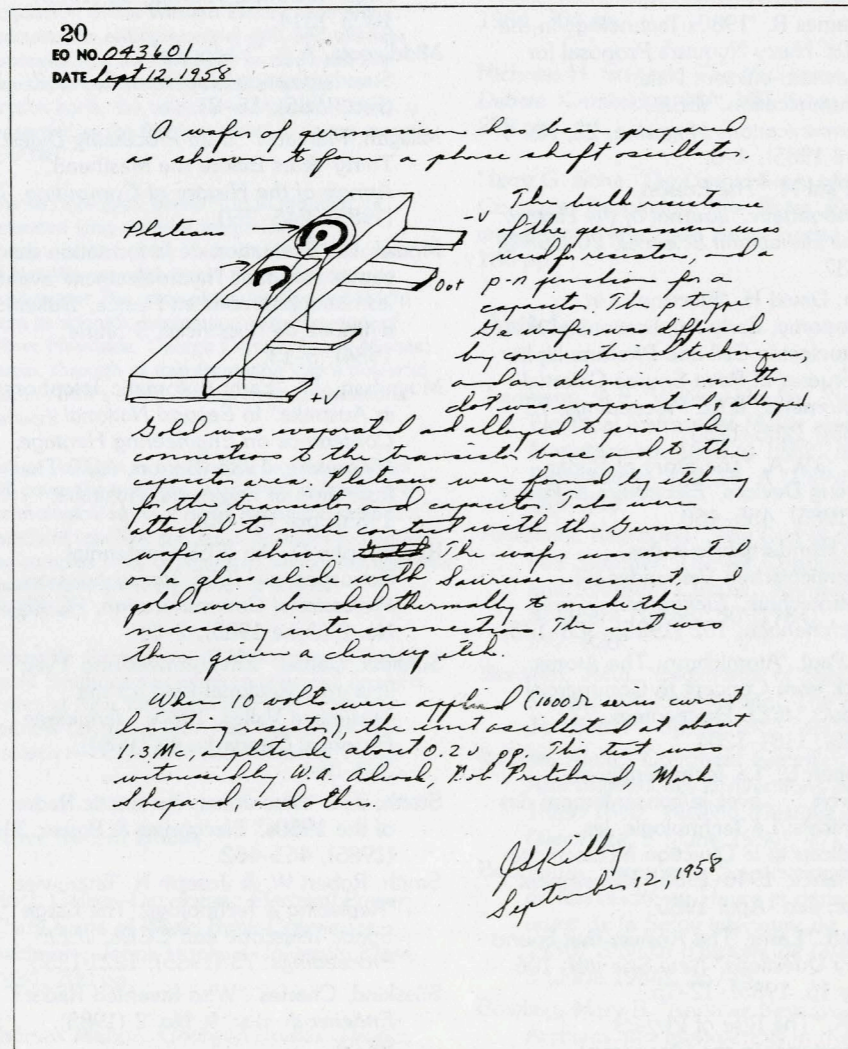 20
EO NO. 043601
DATE Sept 12, 1958
A wafer of germanium has been prepared
as shown to form a phase shift oscillator.
Plateau
-V
Out
+V
The bulk resistance
of the germanium was
used for resistor, and a
p-n junction for a
capacitor. The p type
Ge wafer was diffused
by connection
and an aluminum emitter
dot was evaporated and alloyed.
Gold was evaporated and alloyed to provide
connections to the transistor base and to the
capacitor area. Plateaus were formed by etching
for the transistor and capacitor. Tabs were
attached to make contact with the Germanium
wafer as shown. The wafer was mounted
on a glass slide with Sauereisen cement and
gold wires bonded thermally to make the
necessary interconnections. The unit was
then given a cleanup etch.
When 10 volts were applied (1000Ω series current
limiting resistor), the unit oscillated at about
1.3 Mc, amplitude about 0.2 v pp. This test was
witnessed by W.A. Adcock, Bob Pritchard, Mark
Shepard and others.
JS Kilby
September 12, 1958